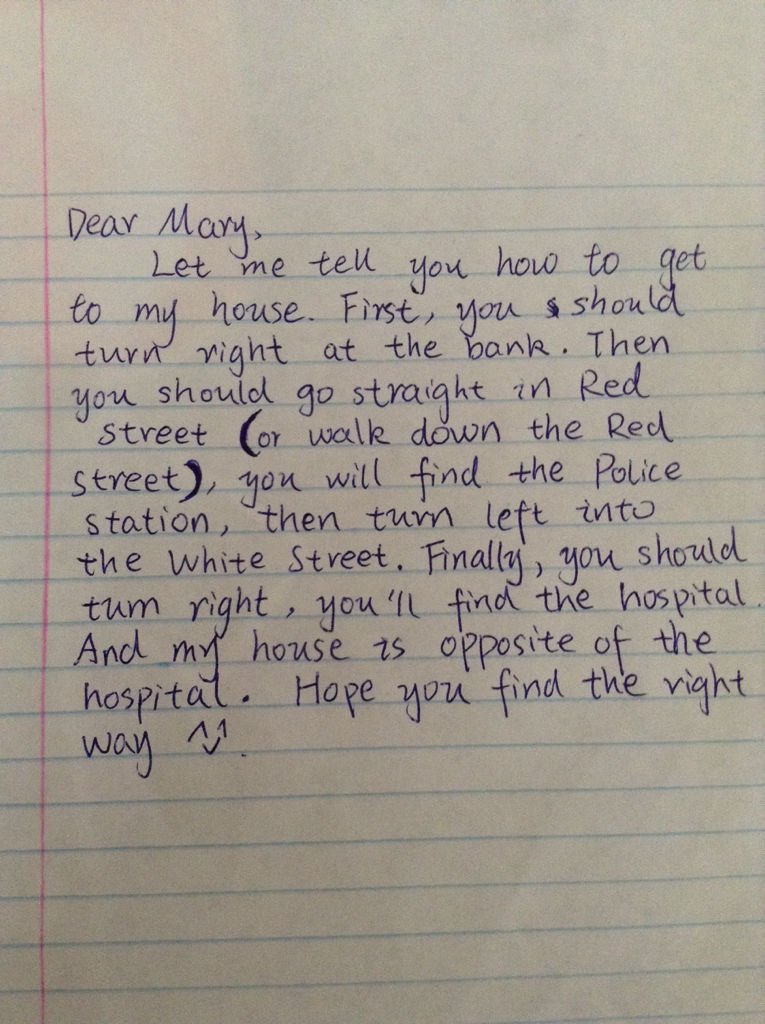 Dear Mary,
Let me tell you how to get
to my house. First, you should
turn right at the bank. Then
you should go straight in Red
street (or walk down the Red
street), you will find the Police
station, then turn left into
the White Street. Finally, you should
turn right, you'll find the hospital.
And my house is opposite of the
hospital. Hope you find the right
way ^v^.